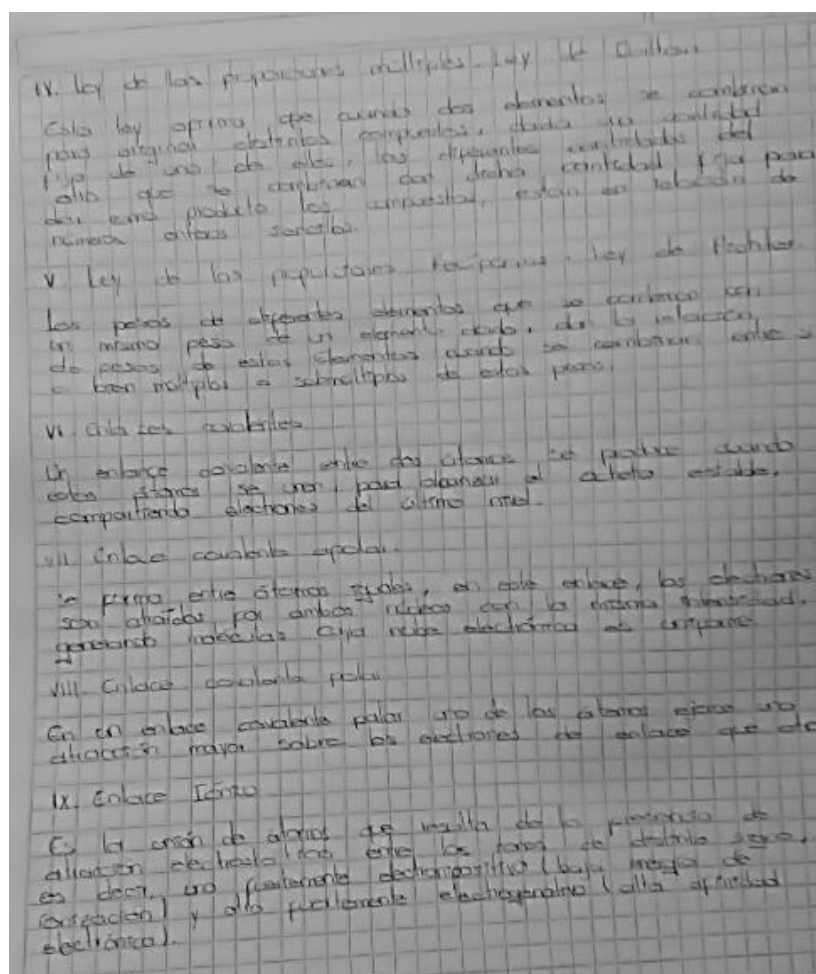 IV. Ley de las proporciones múltiples. Ley de Dalton
Esta ley afirma que cuando dos elementos se combinan
para originar distintos compuestos, dada una cantidad
fija de uno de ellos, las diferentes cantidades del
otro que se combinan con dicha cantidad fija para
dar como producto los compuestos, están en relación de
números enteros sencillos.
V Ley de las proporciones recíprocas. Ley de Richter
Los pesos de diferentes elementos que se combinan con
un mismo peso de un elemento dado, dan la relación
de pesos de estos elementos cuando se combinan entre
o bien múltiplos o submúltiplos de estos pesos.
VI covalentes
Un enlace covalente entre dos átomos se produce cuando
estos átomos se unen, para alcanzar el octeto estable,
compartiendo electrones del último nivel.
VII Enlace covalente apolar.
Se forma entre átomos iguales, en este enlace, los electrones
son atraídos por ambos núcleos con la misma intensidad,
generando moléculas cuya nube electrónica es uniforme
VIII. Enlace covalente polar
En un enlace covalente polar uno de los átomos ejerce una
atracción mayor sobre los electrones de enlace que otro
IX. Enlace Iónico
Es la unión de átomos que resulta de la presencia de
atracción electrostática entre los iones de distinto signo,
es decir, uno fuertemente electropositivo (baja energía de
ionización) y otro fuertemente electronegativo (alta afinidad
electrónica).